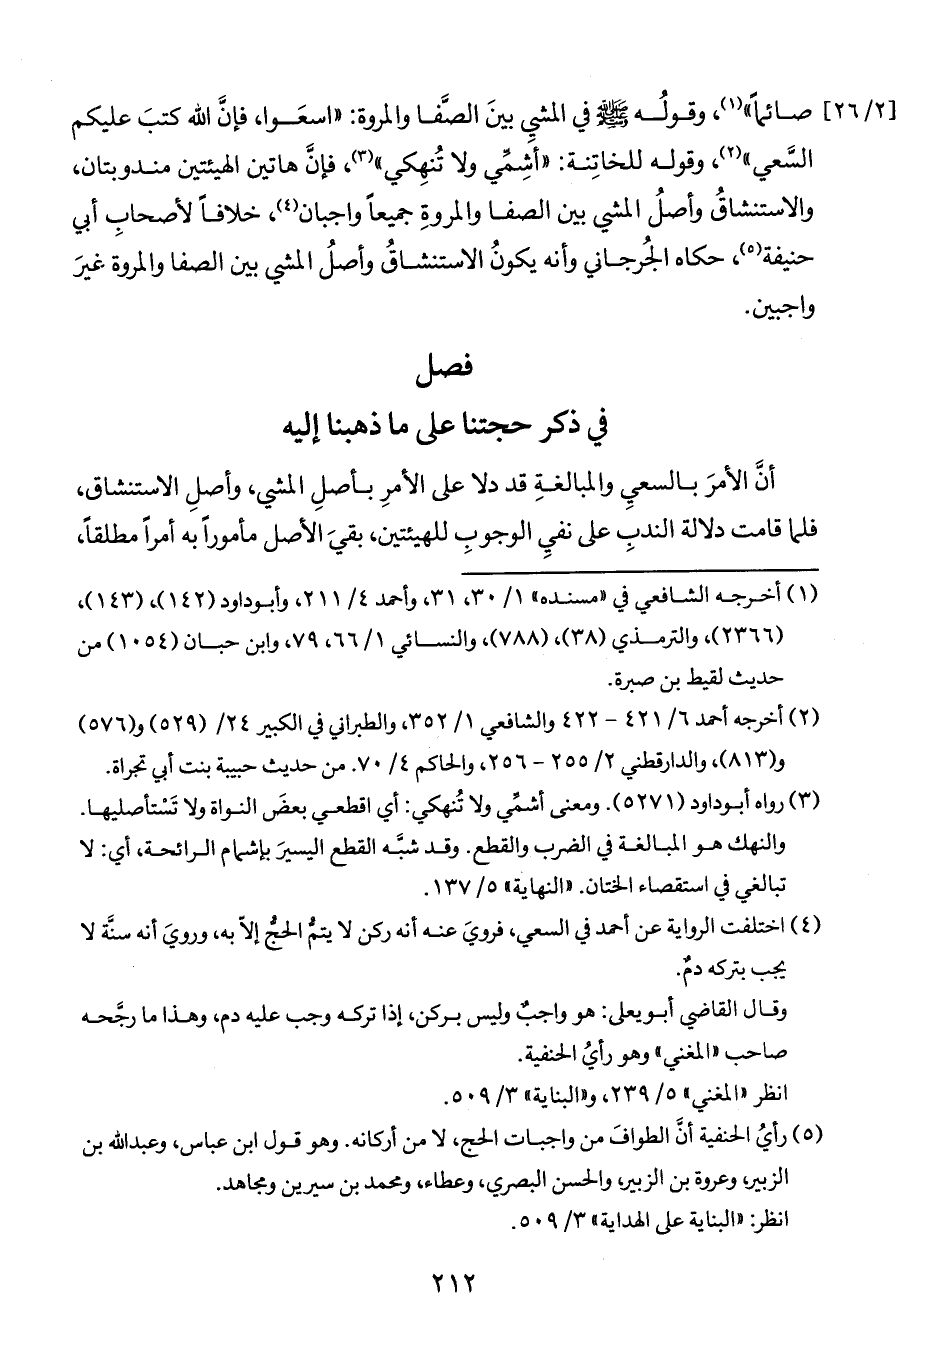 [٢٦/٢] صائماً»(١)، وقولُه ﷺ في المشيِ بينَ الصَّفا والمروة: «اسعَوا، فإنَّ الله كتبَ عليكم
السَّعي»(٢)، وقوله للخاتِنة: «أشِمِّي ولا تُنهِكي»(٣)، فإنَّ هاتين الهيئتين مندوبتان،
والاستنشاقُ وأصلُ المشي بين الصفا والمروةِ جميعاً واجبان(٤)، خلافاً لأصحابِ أبي
حنيفة(٥)، حكاه الجُرجاني وأنه يكونُ الاستنشاقُ وأصلُ المشي بين الصفا والمروة غيرَ
واجبين.
فصل
في ذكر حجتنا على ما ذهبنا إليه
أنَّ الأمرَ بالسعيِ والمبالغةِ قد دلا على الأمرِ بأصلِ المشي، وأصلِ الاستنشاق،
فلما قامت دلالة الندبِ على نفيِ الوجوبِ للهيئتين، بقيَ الأصل مأموراً به أمراً مطلقاً،
(١) أخرجه الشافعي في «مسنده» ١/ ٣٠، ٣١، وأحمد ٤/ ٢١١، وأبوداود (١٤٢)، (١٤٣)،
(٢٣٦٦)، والترمذي (٣٨)، (٧٨٨)، والنسائي ١/ ٦٦، ٧٩، وابن حبان (١٠٥٤) من
حديث لقيط بن صبرة.
(٢) أخرجه أحمد ٦/ ٤٢١ - ٤٢٢ والشافعي ١/ ٣٥٢، والطبراني في الكبير ٢٤/ (٥٢٩) و(٥٧٦)
و(٨١٣)، والدارقطني ٢/ ٢٥٥ - ٢٥٦، والحاكم ٤/ ٧٠. من حديث حبيبة بنت أبي تجراة.
(٣) رواه أبوداود (٥٢٧١). ومعنى أشمِّي ولا تُنهكي: أي اقطعي بعضَ النواة ولا تَسْتأصليها.
والنهك هو المبالغة في الضرب والقطع. وقد شبَّه القطع اليسيرَ بإشمام الرائحة، أي: لا
تبالغي في استقصاء الختان. «النهاية» ٥/ ١٣٧.
(٤) اختلفت الرواية عن أحمد في السعي، فرويَ عنه أنه ركن لا يتمُّ الحجُّ إلاّ به، ورويَ أنه سنَّة لا
يجب بتركه دمٌ.
وقال القاضي أبويعلى: هو واجبٌ وليس بركن، إذا تركه وجب عليه دم، وهذا ما رجَّحه
صاحب «المغني» وهو رأيُ الحنفية.
انظر «المغني» ٥/ ٢٣٩، و«البناية» ٣/ ٥٠٩.
(٥) رأيُ الحنفية أنَّ الطوافَ من واجبات الحج، لا من أركانه. وهو قول ابن عباس، وعبدالله بن
الزبير، وعروة بن الزبير، والحسن البصري، وعطاء، ومحمد بن سيرين ومجاهد.
انظر: «البناية على الهداية» ٣/ ٥٠٩.
٢١٢